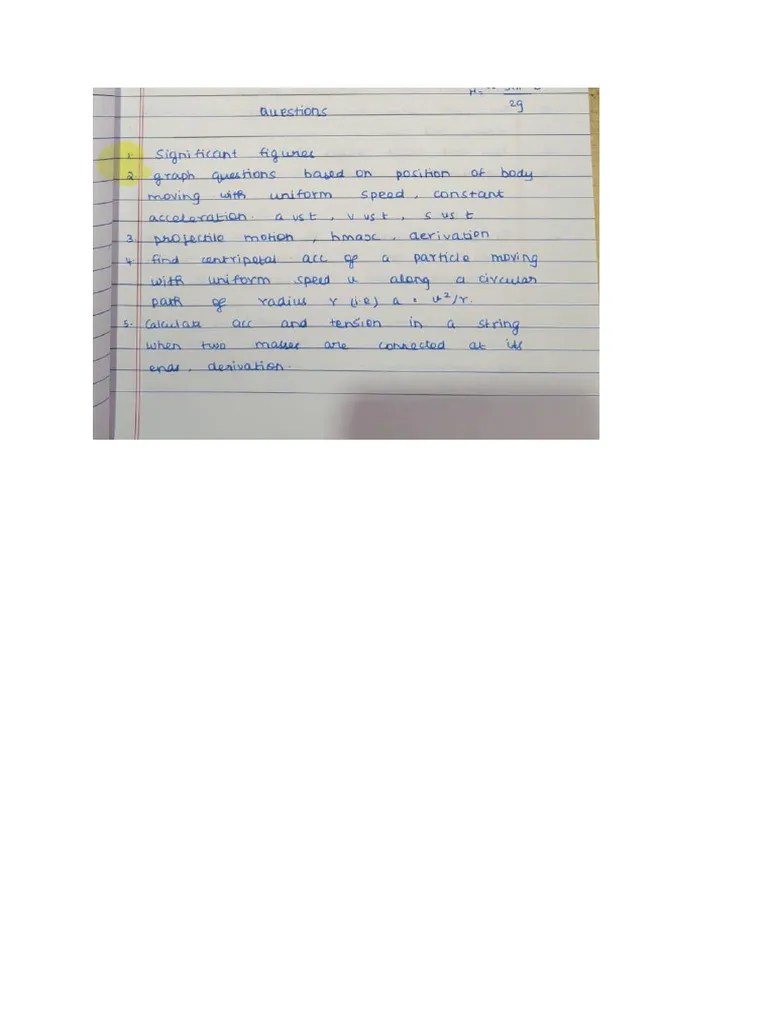 2g
Questions
1. Significant figures
2. graph questions based on position of body
moving with uniform speed, constant
acceleration. a vs t, v vs t, s vs t
3. projectile motion, hmax, derivation
4. find centripetal acc of a particle moving
with uniform speed u along a circular
path of radius r (i.e) a = u²/r.
5. Calculate acc and tension in a string
when two masses are connected at its
ends, derivation.